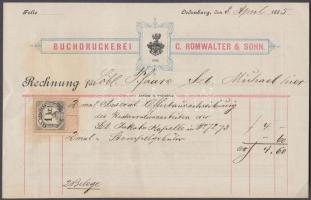 Folio
Oedenburg, den 8 April 1885
BUCHDRUCKEREI C. ROMWALTER & SOHN.
Rechnung für Löbl. Pfarre Skt. Michael hier
2 mal Inserat Offertausschreibung
des Renovationsarbeiten der
Skt Jakobs Kapelle in 72/73 f 4 -
2 mal Stempelgebühr - 60
f 4.60
2 Belege